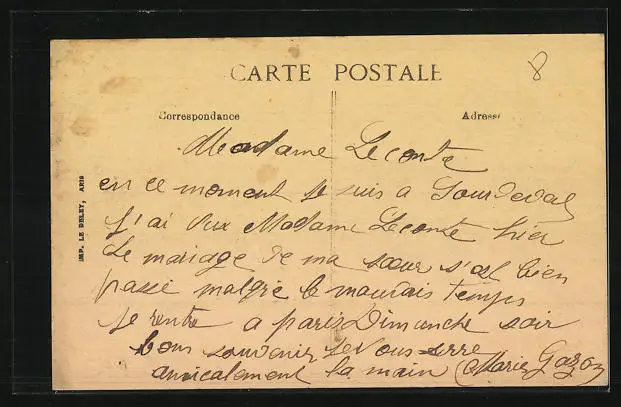 CARTE POSTALE
8
Correspondance Adresse
Madame Leconte
en ce moment je suis a Sourdeval
j'ai vux Madame Leconte hier
Le mariage de ma sœur s'est bien
passé malgré le mauvais temps
je rentre a paris Dimanche soir
bon souvenir je vous serre
amicalement la main Marie Gazon
IMP. LE DELEY, ARIS